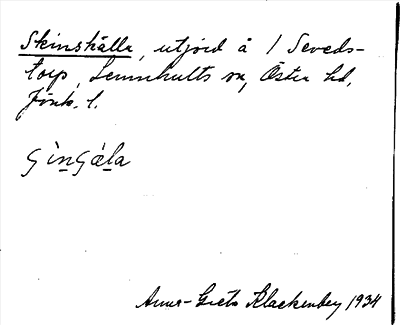 Skinshälla, utjord å 1 Seveds-
torp, Lemnhults sn, Östra hd,
Jönk. l.
Anna-Greta Klackenberg 1934